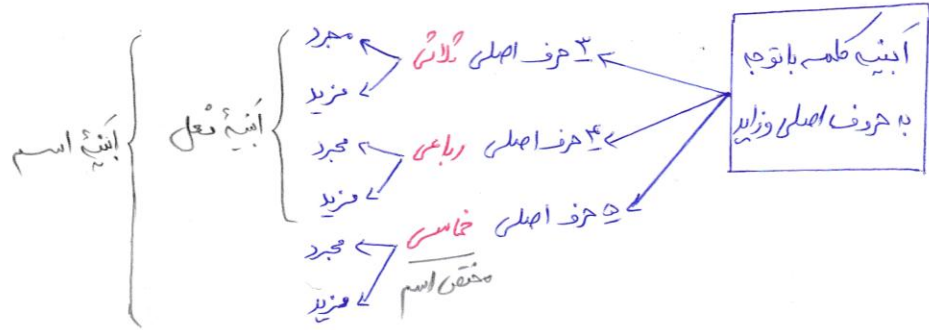 أبنیه کلمه باتوجه
به حروف اصلی وزاید
۳ حرف اصلی ثلاثی
مجرد
مزید
۴ حرف اصلی رباعی
مجرد
مزید
۵ حرف اصلی خماسی
مختص اسم
مجرد
مزید
أبنیهٔ فعل
أبنیهٔ اسم